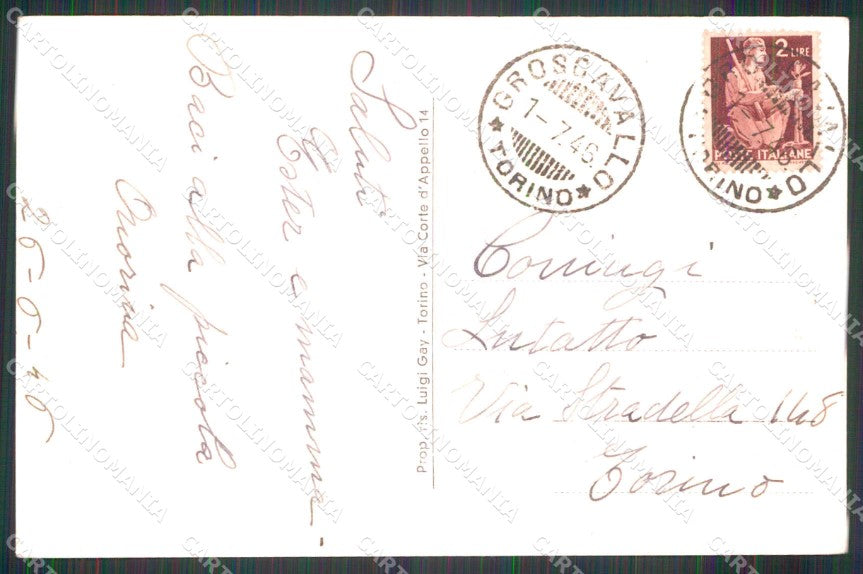 Saluti
Ester e mamma.
Baci alla piccola
Onorina
26-6-46
Prop. ris. Luigi Gay - Torino - Via Corte d'Appello 14
GROSCAVALLO
1-7.46.
★ TORINO ★
2 LIRE
POSTE ITALIANE
Coningi
Lutatto
Via Stradella 148
Torino
CARTOLINOMANIA